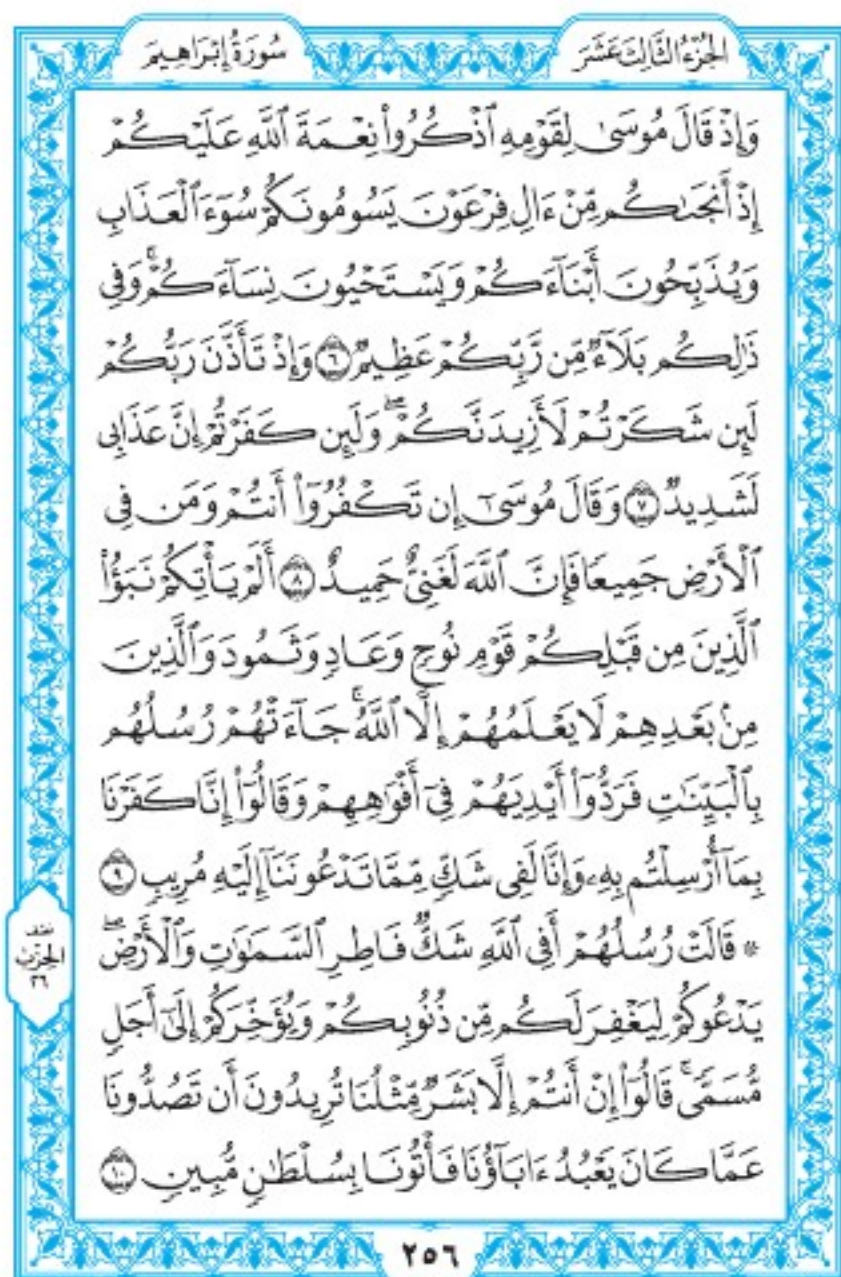 الجُزْءُ الثَّالِثَ عَشَرَ
سُورَةُ إِبْرَاهِيمَ
وَإِذْ قَالَ مُوسَىٰ لِقَوْمِهِ ٱذْكُرُوا۟ نِعْمَةَ ٱللَّهِ عَلَيْكُمْ
إِذْ أَنجَىٰكُم مِّنْ ءَالِ فِرْعَوْنَ يَسُومُونَكُمْ سُوٓءَ ٱلْعَذَابِ
وَيُذَبِّحُونَ أَبْنَآءَكُمْ وَيَسْتَحْيُونَ نِسَآءَكُمْ ۚ وَفِى
ذَٰلِكُم بَلَآءٌ مِّن رَّبِّكُمْ عَظِيمٌ ٦ وَإِذْ تَأَذَّنَ رَبُّكُمْ
لَئِن شَكَرْتُمْ لَأَزِيدَنَّكُمْ ۖ وَلَئِن كَفَرْتُمْ إِنَّ عَذَابِى
لَشَدِيدٌ ٧ وَقَالَ مُوسَىٰٓ إِن تَكْفُرُوٓا۟ أَنتُمْ وَمَن فِى
ٱلْأَرْضِ جَمِيعًا فَإِنَّ ٱللَّهَ لَغَنِىٌّ حَمِيدٌ ٨ أَلَمْ يَأْتِكُمْ نَبَؤُا۟
ٱلَّذِينَ مِن قَبْلِكُمْ قَوْمِ نُوحٍ وَعَادٍ وَثَمُودَ وَٱلَّذِينَ
مِنۢ بَعْدِهِمْ لَا يَعْلَمُهُمْ إِلَّا ٱللَّهُ ۚ جَآءَتْهُمْ رُسُلُهُم
بِٱلْبَيِّنَـٰتِ فَرَدُّوٓا۟ أَيْدِيَهُمْ فِىٓ أَفْوَٰهِهِمْ وَقَالُوٓا۟ إِنَّا كَفَرْنَا
بِمَآ أُرْسِلْتُم بِهِۦ وَإِنَّا لَفِى شَكٍّ مِّمَّا تَدْعُونَنَآ إِلَيْهِ مُرِيبٍ ٩
۞ قَالَتْ رُسُلُهُمْ أَفِى ٱللَّهِ شَكٌّ فَاطِرِ ٱلسَّمَـٰوَٰتِ وَٱلْأَرْضِ ۖ
يَدْعُوكُمْ لِيَغْفِرَ لَكُم مِّن ذُنُوبِكُمْ وَيُؤَخِّرَكُمْ إِلَىٰٓ أَجَلٍ
مُّسَمًّى ۚ قَالُوٓا۟ إِنْ أَنتُمْ إِلَّا بَشَرٌ مِّثْلُنَا تُرِيدُونَ أَن تَصُدُّونَا
عَمَّا كَانَ يَعْبُدُ ءَابَآؤُنَا فَأْتُونَا بِسُلْطَـٰنٍ مُّبِينٍ ١٠
نصف
الحزب
٢٦
٢٥٦